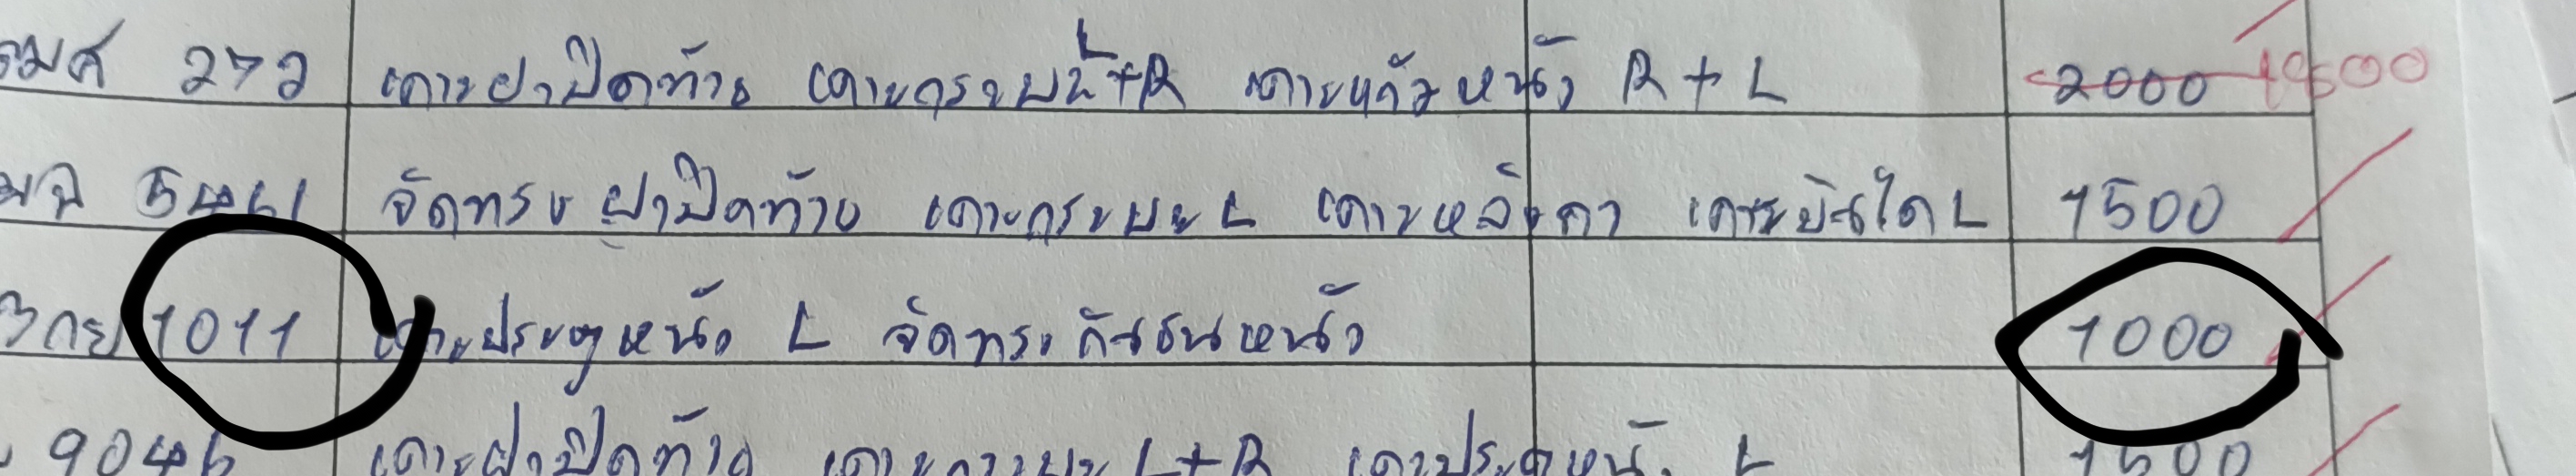 272 เคาะฝาปิดท้าย เคาะกระบะ L+R เคาะแก้มหน้า R + L 2000 1800
5461 จัดทรงฝาปิดท้าย เคาะกระบะ L เคาะหลังคา เคาะบันได L 1500
1011 เคาะประตูหน้า L จัดทรงกันชนหน้า 1000
9046 เคาะฝาปิดท้าย เคาะกระบะ L+R เคาะประตูหน้า L 1500